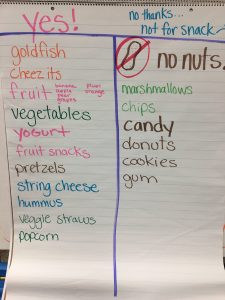 yes!
goldfish
cheez its
fruit banana pear
apple orange
pear
grapes
vegetables
yogurt
fruit snacks
pretzels
string cheese
hummus
veggie straws
popcorn
no thanks...
not for snack
no nuts.
marshmallows
chips
candy
donuts
cookies
gum